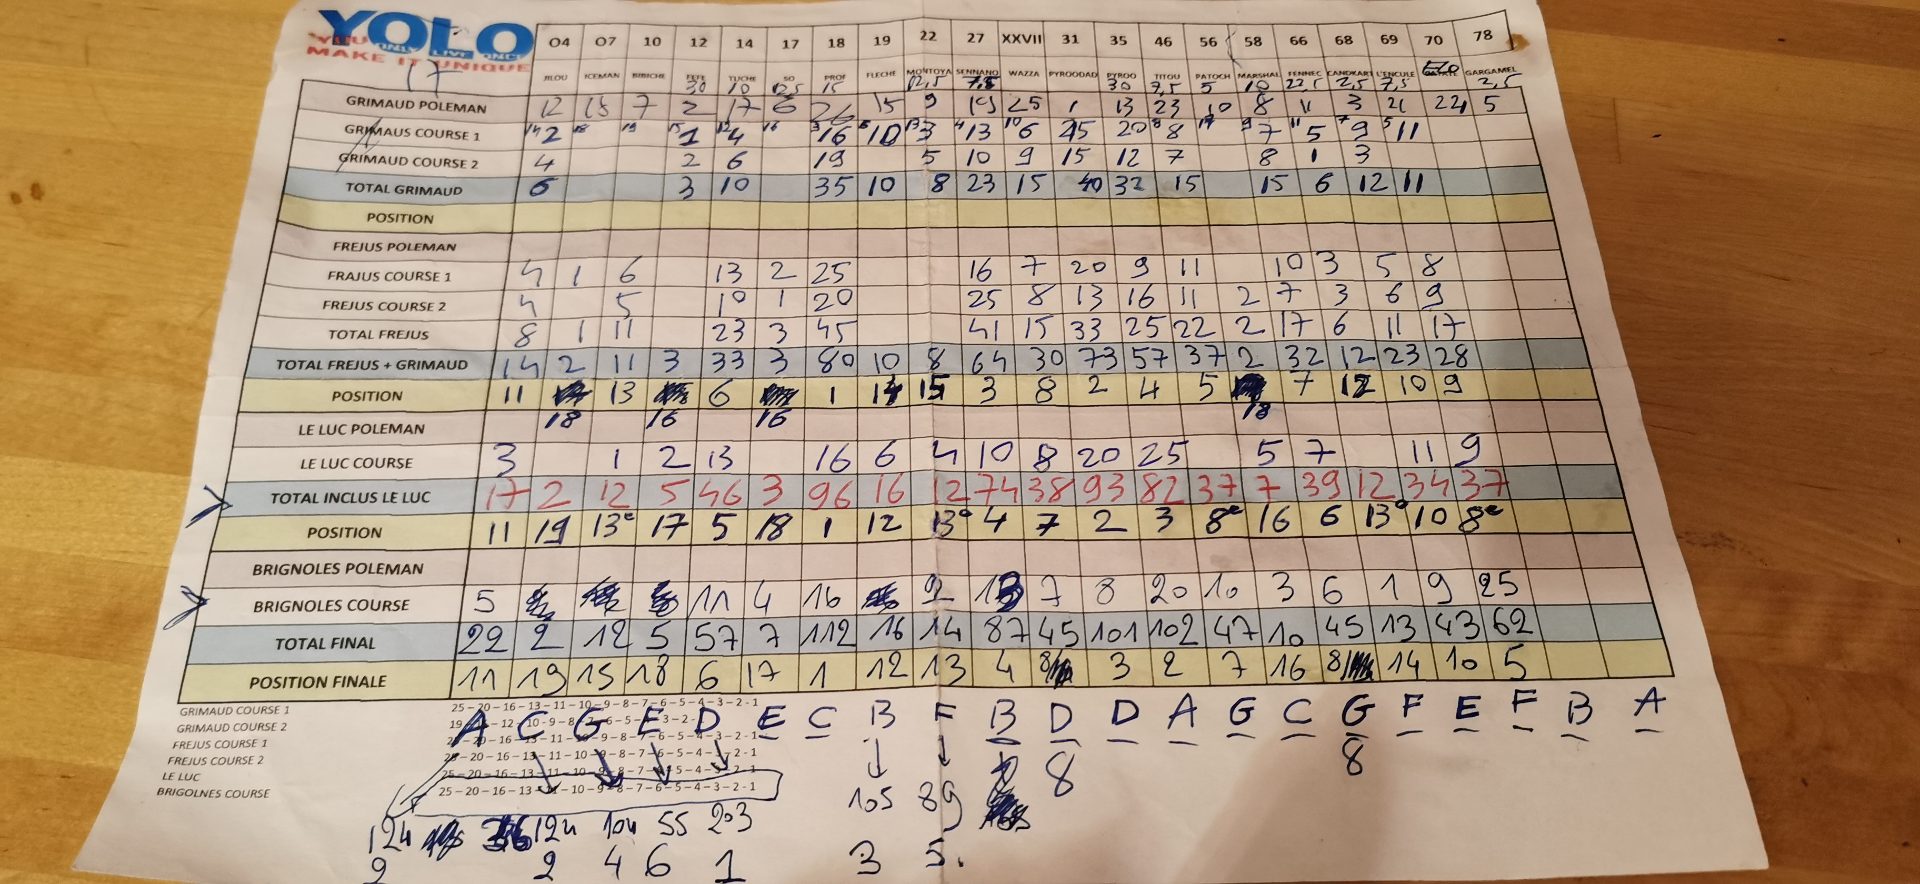 YOLO
YOU ONLY LIVE ONCE
MAKE IT UNIQUE
17
04 07 10 12 14 17 18 19 22 27 XXVII 31 35 46 56 58 66 68 69 70 78
JILOU ICEMAN BIBICHE FEFE TUCHE SO PROF FLECHE MONTOYA SENNANO WAZZA PYROODAD PYROO TITOU PATOCH MARSHAL FENNEC CANDKART L'ENCULE GARGAMEL
30 10 12,5 15 12,5 7,5 30 7,5 5 10 22,5 2,5 7,5 2,5
GRIMAUD POLEMAN 12 18 7 2 17 6 26 15 9 19 25 1 13 23 10 8 11 3 21 22 5
GRIMAUS COURSE 1 14 2 18 19 15 1 12 4 16 3 16 6 10 13 3 4 13 10 6 25 20 8 8 17 9 7 11 5 7 9 5 11
GRIMAUD COURSE 2 4 2 6 19 5 10 9 15 12 7 8 1 3
TOTAL GRIMAUD 6 3 10 35 10 8 23 15 40 32 15 15 6 12 11
POSITION
FREJUS POLEMAN
FRAJUS COURSE 1 4 1 6 13 2 25 16 7 20 9 11 10 3 5 8
FREJUS COURSE 2 4 5 10 1 20 25 8 13 16 11 2 7 3 6 9
TOTAL FREJUS 8 1 11 23 3 45 41 15 33 25 22 2 17 6 11 17
TOTAL FREJUS + GRIMAUD 14 2 11 3 33 3 80 10 8 64 30 73 57 37 2 32 12 23 28
POSITION 11 13 6 1 14 15 3 8 2 4 5 7 12 10 9
18 16 16 18
LE LUC POLEMAN
LE LUC COURSE 3 1 2 13 16 6 4 10 8 20 25 5 7 11 9
TOTAL INCLUS LE LUC 17 2 12 5 46 3 96 16 12 74 38 93 82 37 7 39 12 34 37
POSITION 11 19 13e 17 5 18 1 12 13e 4 7 2 3 8e 16 6 13e 10 8e
BRIGNOLES POLEMAN
BRIGNOLES COURSE 5 11 4 16 2 13 7 8 20 10 3 6 1 9 25
TOTAL FINAL 22 2 12 5 57 7 112 16 14 87 45 101 102 47 10 45 13 43 62
POSITION FINALE 11 19 15 18 6 17 1 12 13 4 8 3 2 7 16 8 14 10 5
A C G E D E C B F B D D A G C G F E F B A
GRIMAUD COURSE 1 25 – 20 – 16 – 13 – 11 – 10 – 9 – 8 – 7 – 6 – 5 – 4 – 3 – 2 - 1
GRIMAUD COURSE 2
FREJUS COURSE 1
FREJUS COURSE 2
LE LUC
BRIGOLNES COURSE 25 – 20 – 16 – 13 – 11 – 10 – 9 – 8 – 7 – 6 – 5 – 4 – 3 – 2 - 1
8 8
105 89
124 124 104 55 203
2 2 4 6 1 3 5.